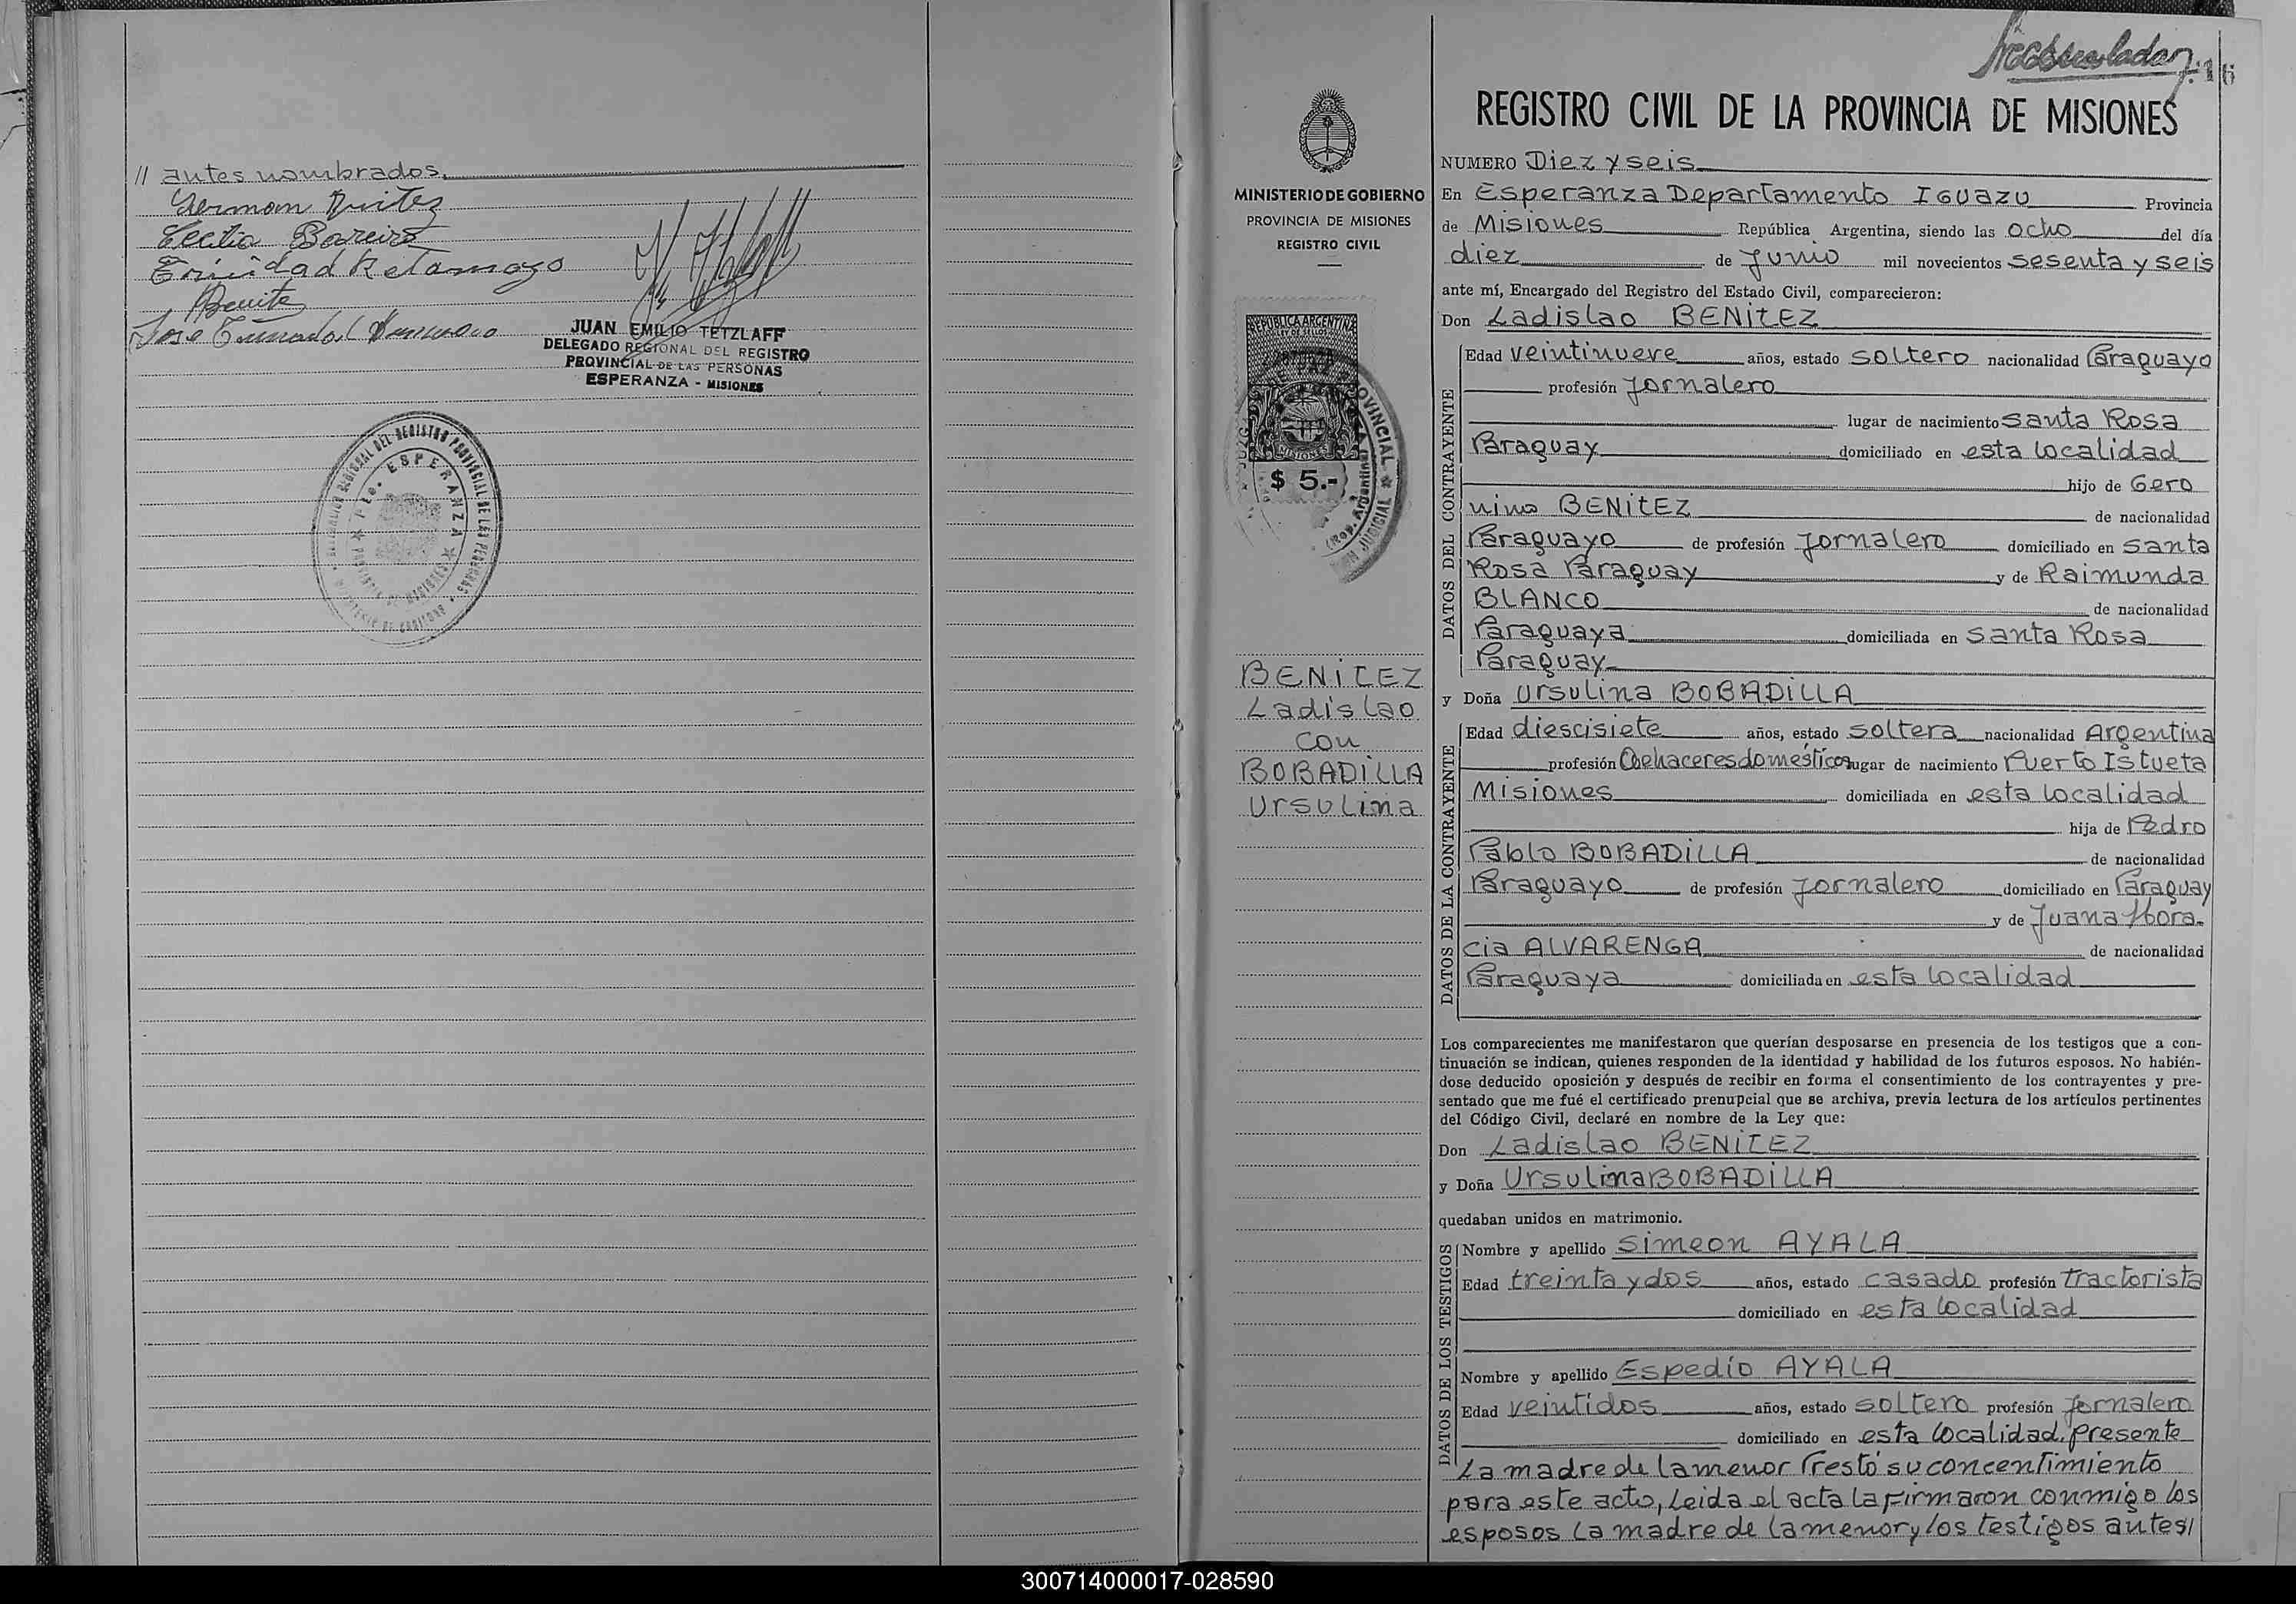 // antes nombrados.
German
Cecilia Boreiro
Trinidad Retamozo
Benite
Jose
JUAN EMILIO TETZLAFF
DELEGADO REGIONAL DEL REGISTRO
PROVINCIAL DE LAS PERSONAS
ESPERANZA - MISIONES
DELEGACION REGIONAL DEL REGISTRO PROVINCIAL DE LAS PERSONAS
Pto. ESPERANZA
16
MINISTERIO DE GOBIERNO
PROVINCIA DE MISIONES
REGISTRO CIVIL
REPUBLICA ARGENTINA
LEY DE SELLOS
MISIONES
$ 5.-
BENITEZ
Ladislao
con
BOBADILLA
Ursulina
REGISTRO CIVIL DE LA PROVINCIA DE MISIONES
NUMERO Diez y seis
En Esperanza Departamento IGUAZU Provincia
de Misiones República Argentina, siendo las ocho del día
diez de Junio mil novecientos sesenta y seis
ante mí, Encargado del Registro del Estado Civil, comparecieron:
Don Ladislao BENITEZ
DATOS DEL CONTRAYENTE
Edad veintinueve años, estado soltero nacionalidad Paraguayo
profesión Jornalero
lugar de nacimiento Santa Rosa
Paraguay domiciliado en esta localidad
hijo de Gero
nimo BENITEZ de nacionalidad
Paraguayo de profesión Jornalero domiciliado en Santa
Rosa Paraguay y de Raimunda
BLANCO de nacionalidad
Paraguaya domiciliada en Santa Rosa
Paraguay
y Doña Ursulina BOBADILLA
DATOS DE LA CONTRAYENTE
Edad diescisiete años, estado soltera nacionalidad Argentina
profesión Quehaceres domésticos lugar de nacimiento Puerto Istueta
Misiones domiciliada en esta localidad
hija de Pedro
Pablo BOBADILLA de nacionalidad
Paraguayo de profesión Jornalero domiciliado en Paraguay
y de Juana Hora-
cia ALVARENGA de nacionalidad
Paraguaya domiciliada en esta localidad
Los comparecientes me manifestaron que querían desposarse en presencia de los testigos que a con-
tinuación se indican, quienes responden de la identidad y habilidad de los futuros esposos. No habién-
dose deducido oposición y después de recibir en forma el consentimiento de los contrayentes y pre-
sentado que me fué el certificado prenupcial que se archiva, previa lectura de los artículos pertinentes
del Código Civil, declaré en nombre de la Ley que:
Don Ladislao BENITEZ
y Doña Ursulina BOBADILLA
quedaban unidos en matrimonio.
DATOS DE LOS TESTIGOS
Nombre y apellido Simeon AYALA
Edad treinta y dos años, estado casado profesión tractorista
domiciliado en esta localidad
Nombre y apellido Espedio AYALA
Edad veintidos años, estado soltero profesión Jornalero
domiciliado en esta localidad. Presente
La madre de la menor Prestó su concentimiento
para este acto, Leida el acta la firmaron conmigo los
esposos la madre de la menor y los testigos antes//
300714000017-028590